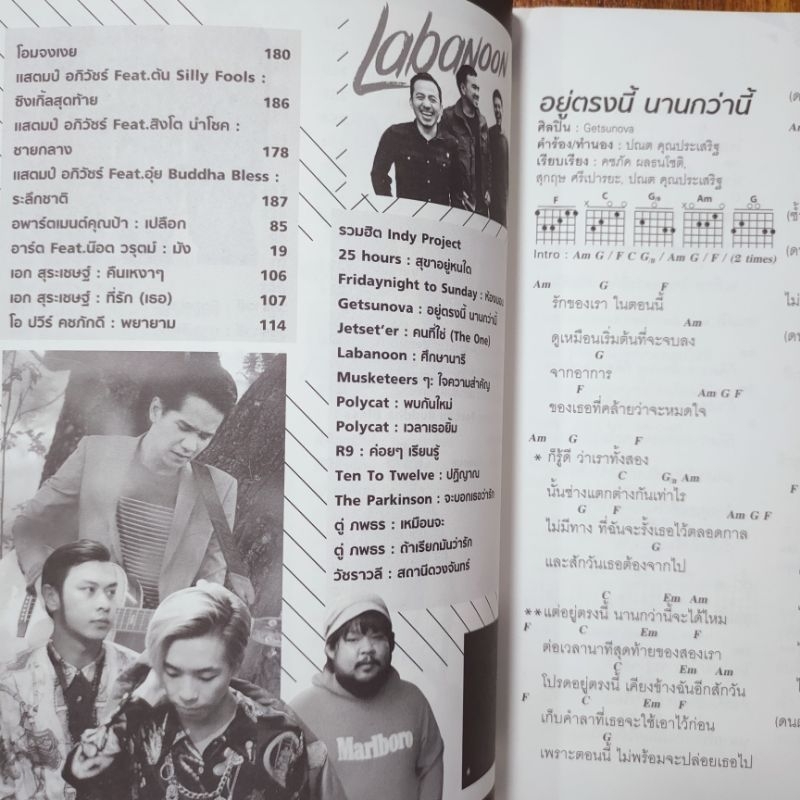 โอมจงเงย 180
แสตมป์ อภิวัชร์ Feat.ตัน Silly Fools :
ซิงเกิ้ลสุดท้าย 186
แสตมป์ อภิวัชร์ Feat.สิงโต นำโชค :
ชายกลาง 178
แสตมป์ อภิวัชร์ Feat.อุ๋ย Buddha Bless :
ระลึกชาติ 187
อพาร์ตเมนต์คุณป้า : เปลือก 85
อาร์ต Feat.น๊อต วรุตม์ : มัง 19
เอก สุระเชษฐ์ : คืนเหงาๆ 106
เอก สุระเชษฐ์ : ที่รัก (เธอ) 107
โอ ปวีร์ คชภักดี : พยายาม 114
LabaNOON
รวมฮิต Indy Project
25 hours : สุขาอยู่หนใด
Fridaynight to Sunday : ห้องนอน
Getsunova : อยู่ตรงนี้ นานกว่านี้
Jetset'er : คนที่ใช่ (The One)
Labanoon : ศึกษานารี
Musketeers ๆ: ใจความสำคัญ
Polycat : พบกันใหม่
Polycat : เวลาเธอยิ้ม
R9 : ค่อยๆ เรียนรู้
Ten To Twelve : ปฏิญาณ
The Parkinson : จะบอกเธอว่ารัก
ตู่ ภพธร : เหมือนจะ
ตู่ ภพธร : ถ้าเรียกมันว่ารัก
วัชราวลี : สถานีดวงจันทร์
Marlboro
อยู่ตรงนี้ นานกว่านี้
ศิลปิน : Getsunova
คำร้อง/ทำนอง : ปณต คุณประเสริฐ
เรียบเรียง : คชภัค ผลธนโชติ,
สุกฤษ ศรีเปารยะ, ปณต คุณประเสริฐ
F C G/B Am G
Intro : Am G / F C G/B / Am G / F / (2 times)
Am G F
รักของเรา ในตอนนี้
Am
ดูเหมือนเริ่มต้นที่จะจบลง
G
จากอาการ
F Am G F
ของเธอที่คล้ายว่าจะหมดใจ
Am G F
* ก็รู้ดี ว่าเราทั้งสอง
C G/B Am
นั้นช่างแตกต่างกันเท่าไร
G F Am G F
ไม่มีทาง ที่ฉันจะรั้งเธอไว้ตลอดกาล
G
และสักวันเธอต้องจากไป
C Em Am
**แต่อยู่ตรงนี้ นานกว่านี้จะได้ไหม
F C Em F
ต่อเวลานาทีสุดท้ายของสองเรา
C Em Am
โปรดอยู่ตรงนี้ เคียงข้างฉันอีกสักวัน
F C Em F
เก็บคำลาที่เธอจะใช้เอาไว้ก่อน
G
เพราะตอนนี้ ไม่พร้อมจะปล่อยเธอไป